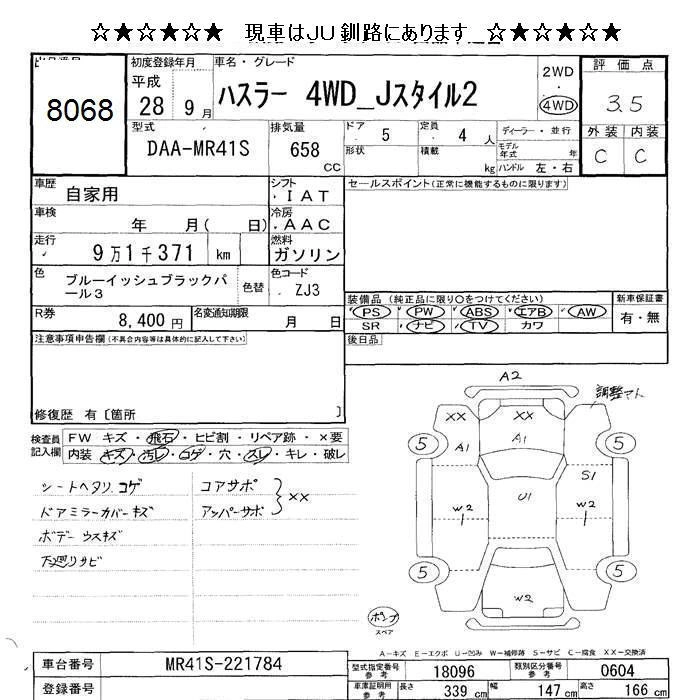 ☆★☆★☆★ 現車はJU釧路にあります ☆★☆★☆★
8068
初度登録年月 車名・グレード
平成 28 9月
ハスラー 4WD_Jスタイル2
2WD
4WD
評価点
3.5
外装 内装
C C
型式 DAA-MR41S
排気量 658 CC
ドア 5 定員 4人
形状 積載 kg
ディーラー・並行
モデル年式 年
ハンドル 左・右
車歴 自家用
シフト IAT
セールスポイント(正常に機能するものに限ります)
車検 年 月( 日)
冷房 AAC
走行 9万1千371 km
燃料 ガソリン
色 ブルーイッシュブラックパール3
色替
色コード ZJ3
装備品(純正品に限り○をつけてください)
新車保証書
PS PW ABS エアB AW
有・無
SR ナビ TV カワ
R券 8,400円
名変通知期限 月 日
後日品
注意事項申告欄(不具合内容等は具体的に記入して下さい)
修復歴 有〔箇所 〕
検査員記入欄
FW キズ・飛石・ヒビ割・リペア跡・×要
内装 キズ・汚レ・コゲ・穴・スレ・キレ・破レ
シートヘタリ、コゲ
ドアミラーカバーキズ
ボデー ウスキズ
下廻りサビ
コアサポ
アッパーサポ
××
A2
調整マト
XX XX
A1 A1
5 5
S1
U1
W2 W2
1 1
5 5
W2
ポンプ
スペア
A-キズ E-エクボ U-凹み W-補修跡 S-サビ C-腐食 XX-交換済
車台番号 MR41S-221784
型式指定番号参考 18096
類別区分番号参考 0604
登録番号
車庫証明用参考
長さ 339 cm 幅 147 cm 高さ 166 cm